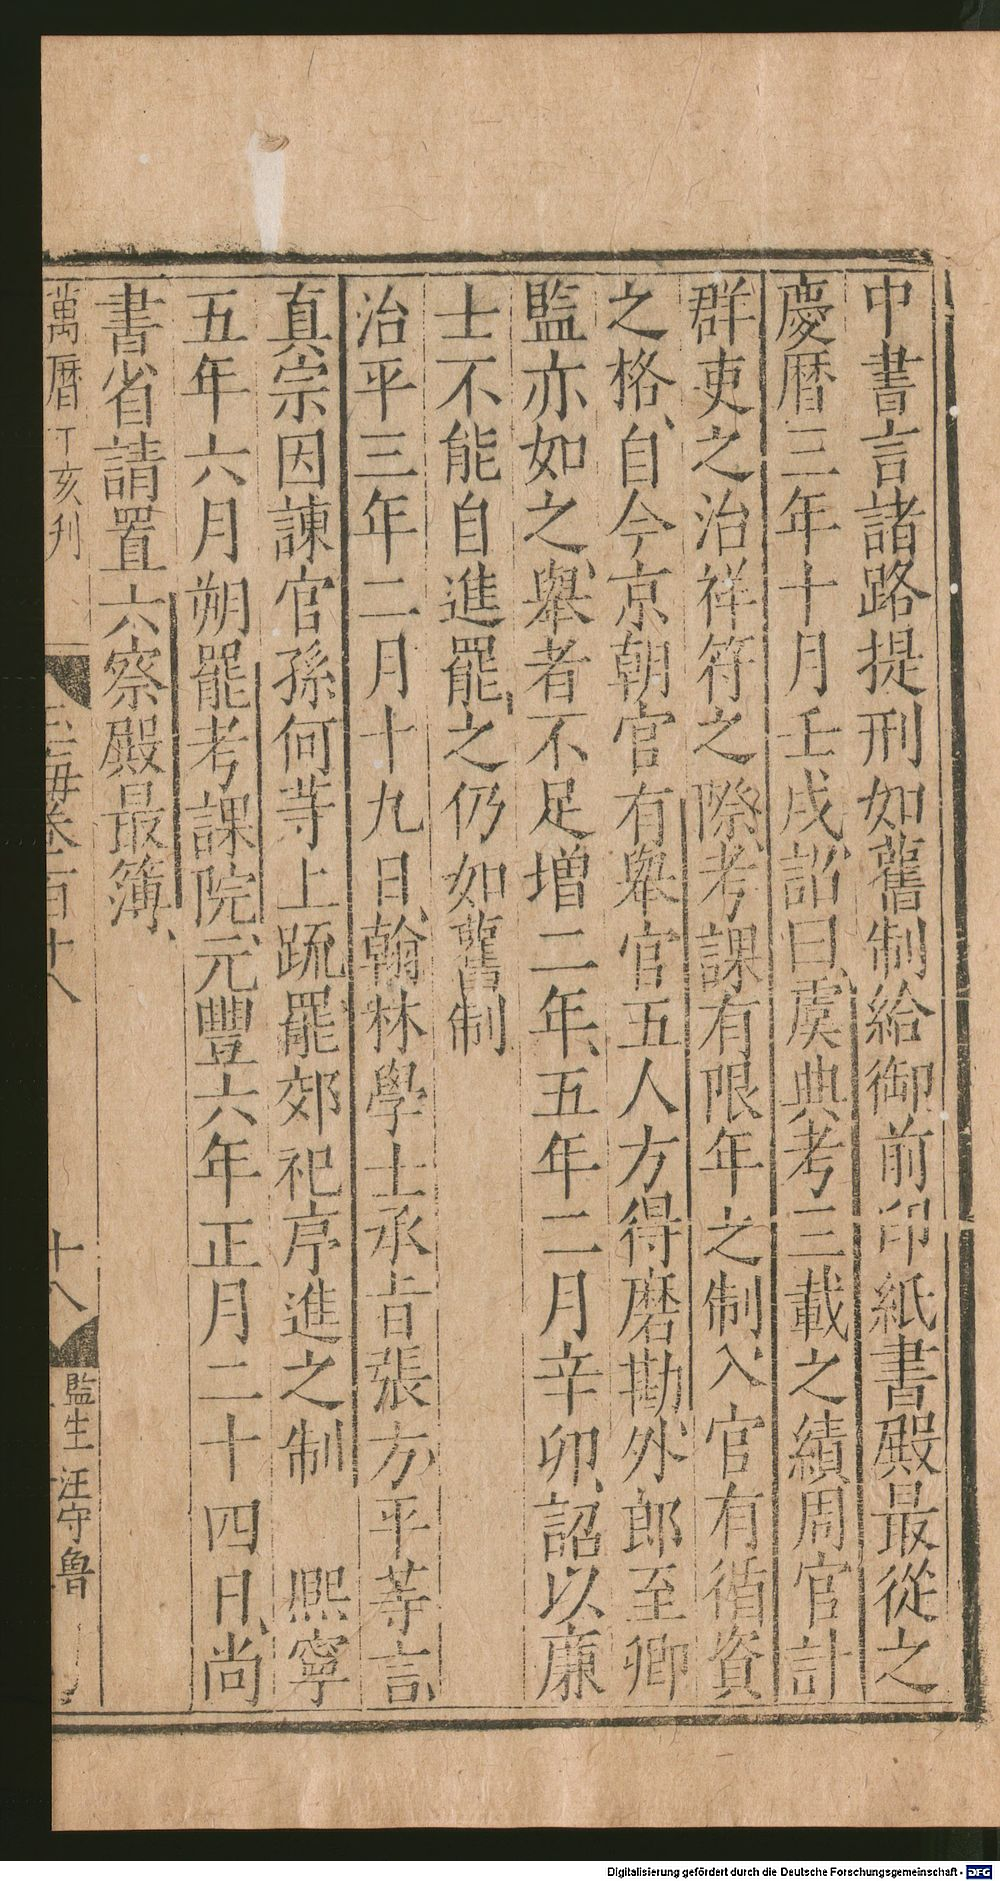 中書言諸路提刑如舊制給御前印紙書殿最從之
慶曆三年十月壬戌詔曰虞典考三載之績周官計
群吏之治祥符之際考課有限年之制入官有循資
之格自今京朝官有舉官五人方得磨勘外郎至卿
監亦如之舉者不足增二年五年二月辛卯詔以廉
士不能自進罷之仍如舊制
治平三年二月十九日翰林學士承旨張方平等言
真宗因諫官孫何等上疏罷郊祀序進之制 熙寧
五年六月朔罷考課院元豐六年正月二十四日尚
書省請置六察殿最簿
萬曆丁亥刊
玉海卷百十八
十八
監生汪守魯
Digitalisierung gefördert durch die Deutsche Forschungsgemeinschaft - DFG